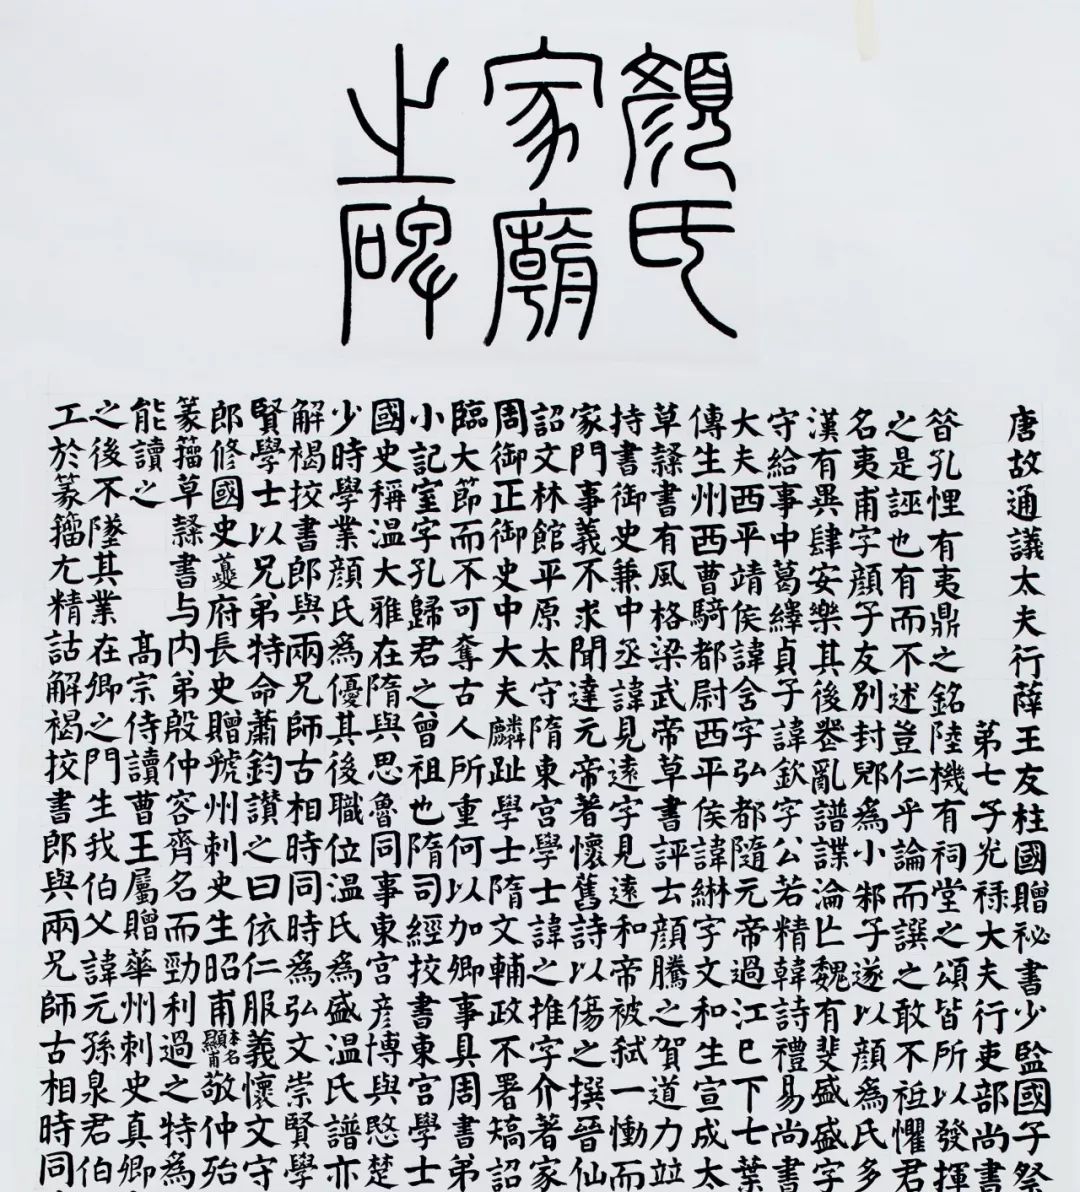 顏氏
家廟
之碑
唐故通議太夫行薛王友柱國贈祕書少監國子祭
第七子光祿大夫行吏部尚書
昝孔悝有夷鼎之銘陸機有祠堂之頌皆所以發揮
之是誣也有而不述豈仁乎論而譔之敢不祗懼君
名夷甫字顏子友別封郳為小邾子遂以顏為氏多
漢有異肆安樂其後喪亂譜諜淪亡魏有斐盛盛字
守給事中葛繹貞子諱欽字公若精韓詩禮易尚書
大夫西平靖侯諱含字弘都隨元帝過江已下七葉
傳生州西曹騎都尉西平侯諱綝字文和生宣成太
草隸書有風格梁武帝草書評云顏騰之賀道力竝
持書御史兼中丞諱見遠字見遠和帝被弒一慟而
家門事義不求聞達元帝著懷舊詩以傷之撰晉仙
詔文林館平原太守隋東宮學士諱之推字介著家
周御正御史中大夫麟趾學士隋文輔政不署矯詔
臨大節而不可奪古人所重何以加卿事具周書弟
小記室字孔歸君之曾祖也隋司經挍書東宮學士
國史稱溫大雅在隋與思魯同事東宮彥博與愍楚
少時學業顏氏為優其後職位溫氏為盛溫氏譜亦
解褐挍書郎與兩兄師古相時同時為弘文崇賢學
賢學士以兄弟特命蕭鈞讚之曰依仁服義懷文守
郎修國史夔府長史贈虢州刺史生昭甫本名顯甫敬仲殆
篆籀草隸書与内弟殷仲容齊名而勁利過之特為
能讀之 高宗侍讀曹王屬贈華州刺史真卿
之後不墜其業在卿之門生我伯父諱元孫泉君伯
工於篆籀尤精詁解褐挍書郎與兩兄師古相時同